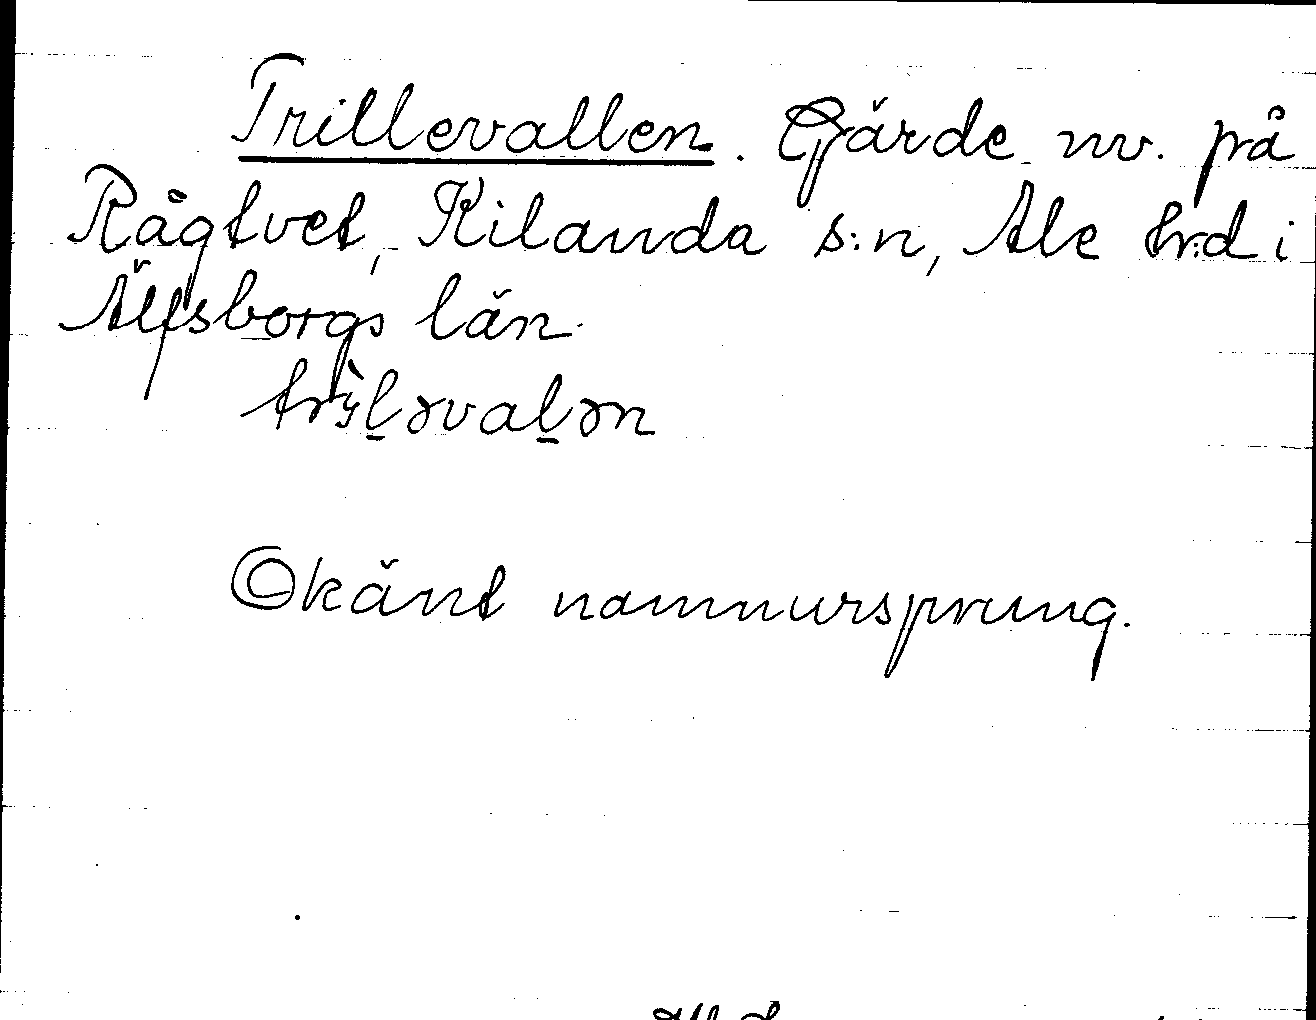 Trillevallen. Gärde nv. på
Rågtvet, Kilanda s:n, Ale hr:d i
Älfsborgs län.
Okänt namnursprung.